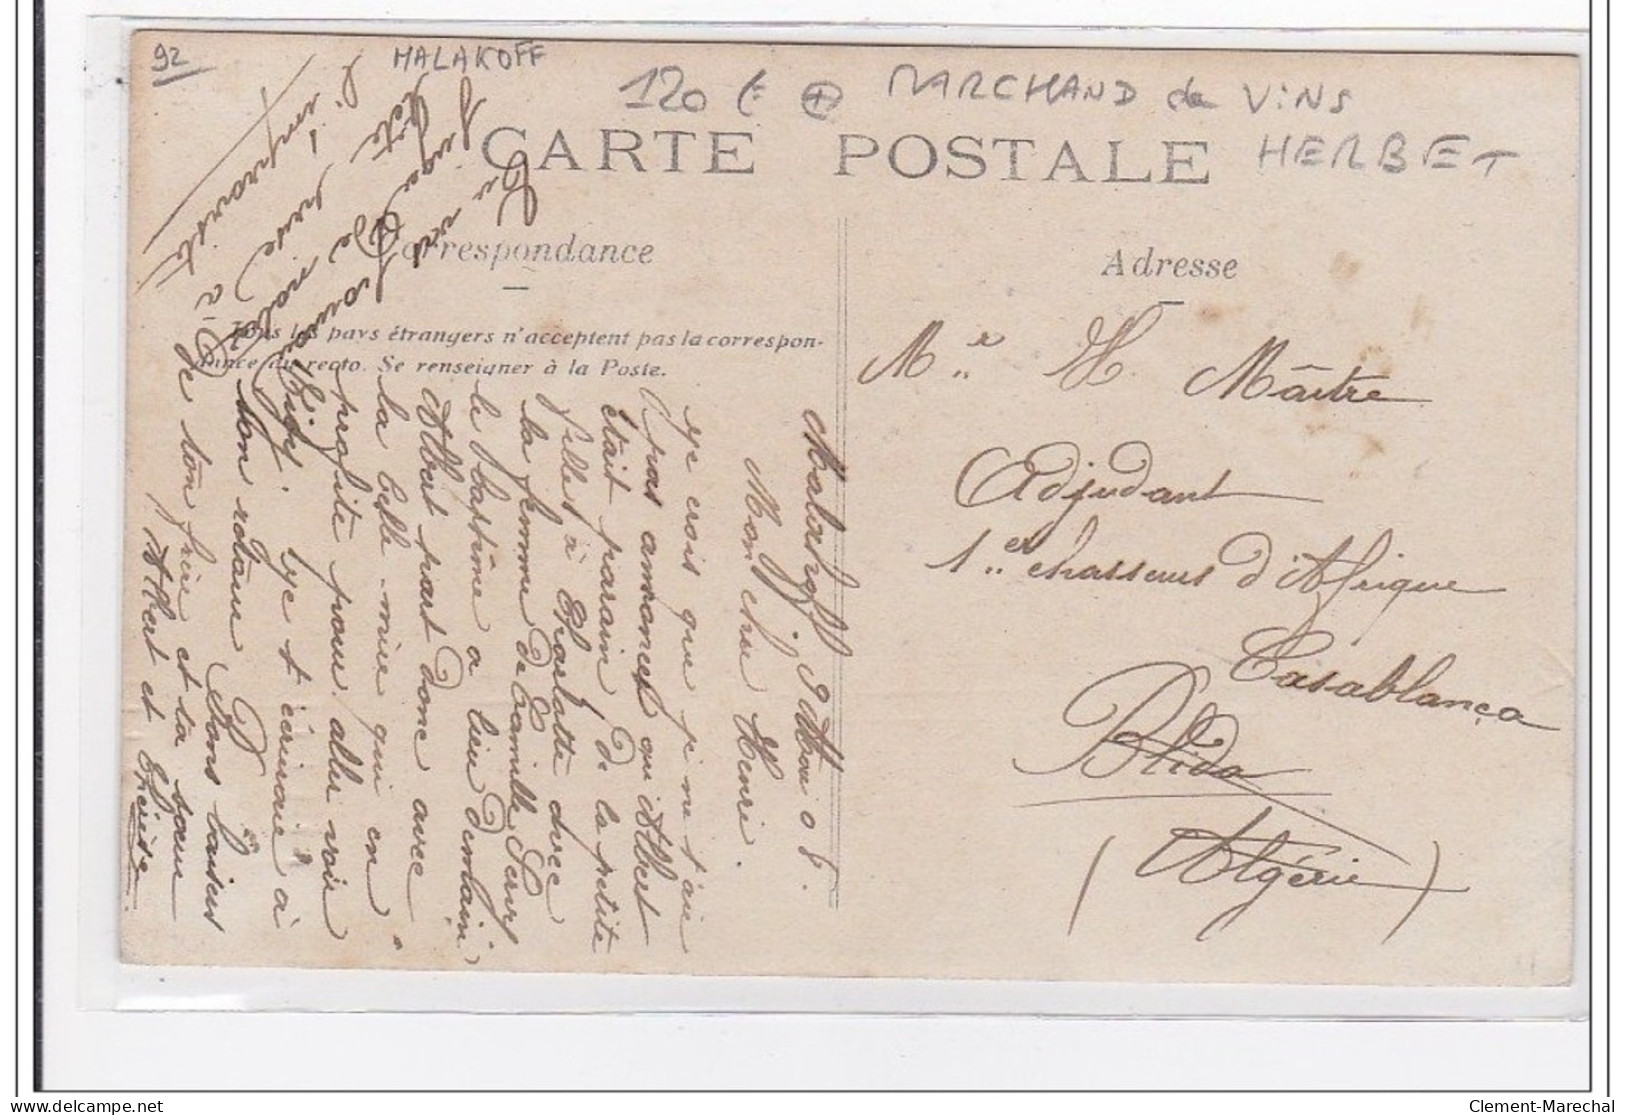 92
MALAKOFF
120 € + MARCHAND de VINS
HERBET
CARTE POSTALE
Correspondance
Adresse
Tous les pays étrangers n'acceptent pas la correspon-
dance au recto. Se renseigner à la Poste.
Mr H. Maître
Adjudant
1er chasseurs d'Afrique
Casablança
Blida
(Algérie)
Malakoff, 9
Mon cher Henri.
Je crois que je ne t'ai
pas annoncé qu'Albert
était parain de la petite
fille à Charlotte avec
la femme de Camille
le baptême a lieu demain,
Albert part donc avec
la belle-mère qui en
profite pour aller voir
Gigi. Je t'écrirai à
son retour. Bons baisers
De ton frère et ta sœur
Albert et Thérèse.
Tu vois
jugeu de notre
tête
prise à
l'improviste
Clement-Marechal